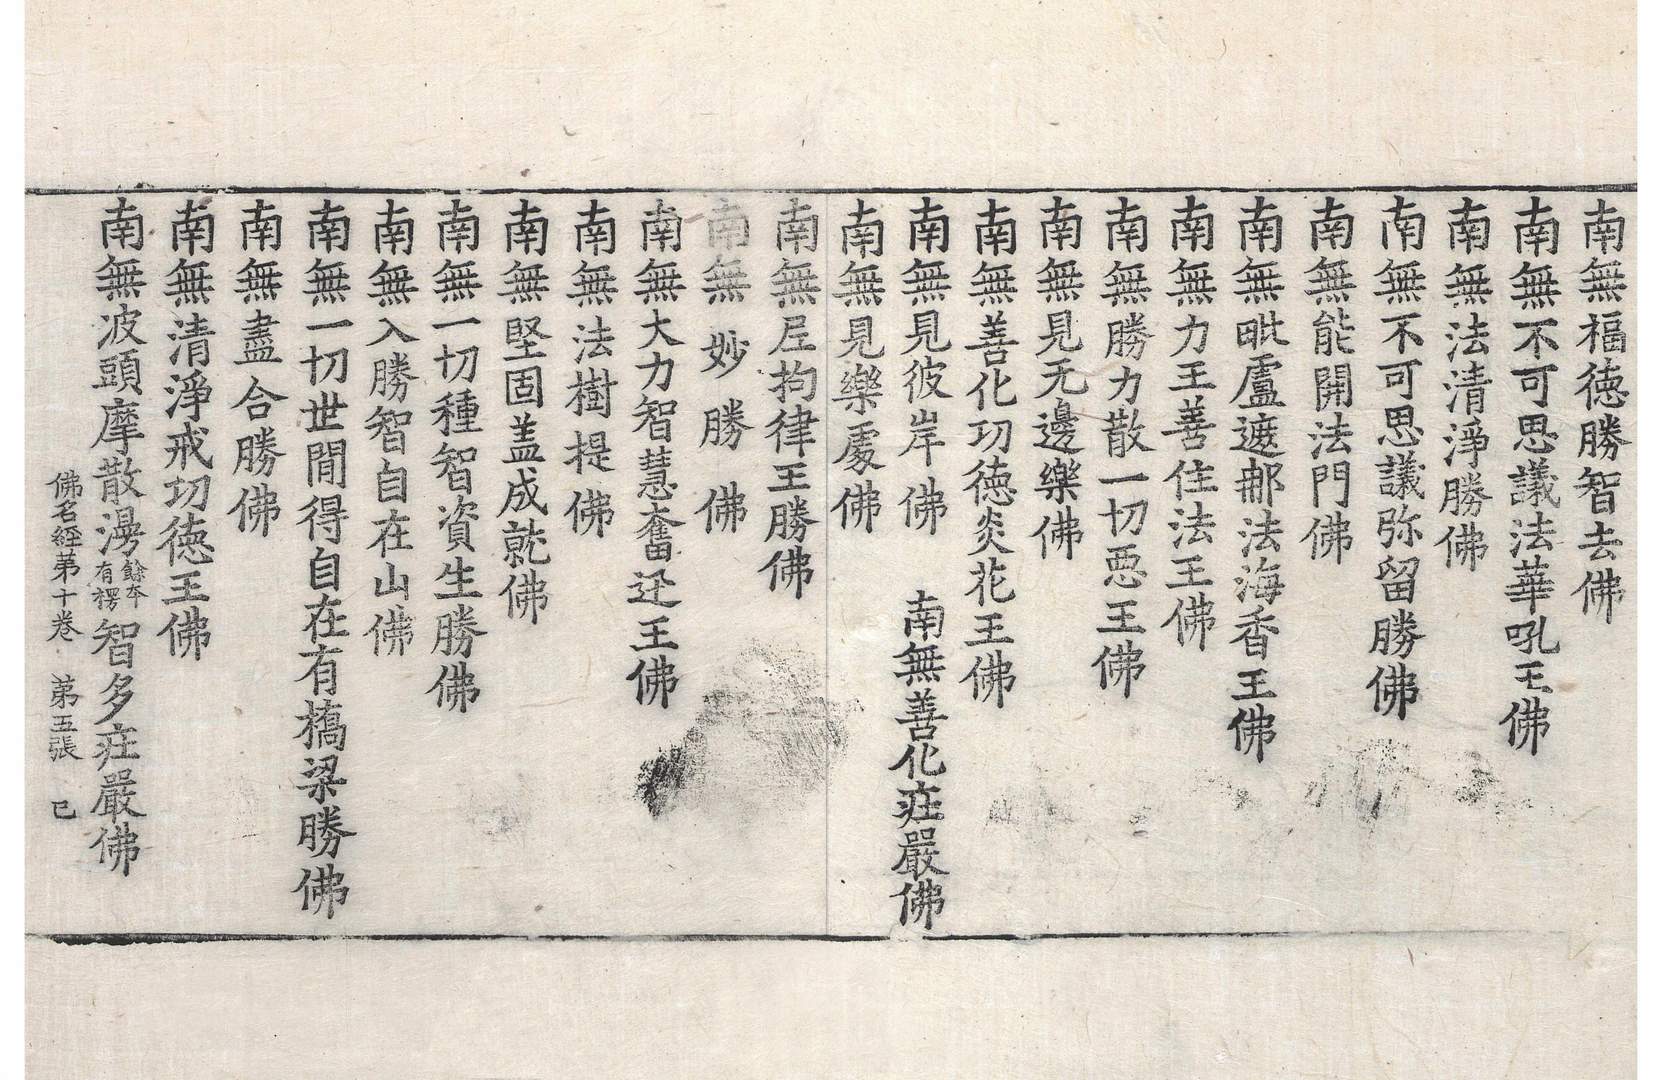 南無福德勝智去佛
南無不可思議法華吼王佛
南無法清淨勝佛
南無不可思議弥留勝佛
南無能開法門佛
南無毗盧遮那法海香王佛
南無力王善住法王佛
南無勝力散一切惡王佛
南無見无邊樂佛
南無善化功德炎花王佛
南無見彼岸佛 南無善化莊嚴佛
南無見樂處佛
南無尼拘律王勝佛
南無妙勝佛
南無大力智慧奮迅王佛
南無法樹提佛
南無堅固盖成就佛
南無一切種智資生勝佛
南無入勝智自在山佛
南無一切世間得自在有橋梁勝佛
南無盡合勝佛
南無清淨戒功德王佛
南無波頭摩散湯餘本有楞智多莊嚴佛
佛名經第十卷 第五張 已